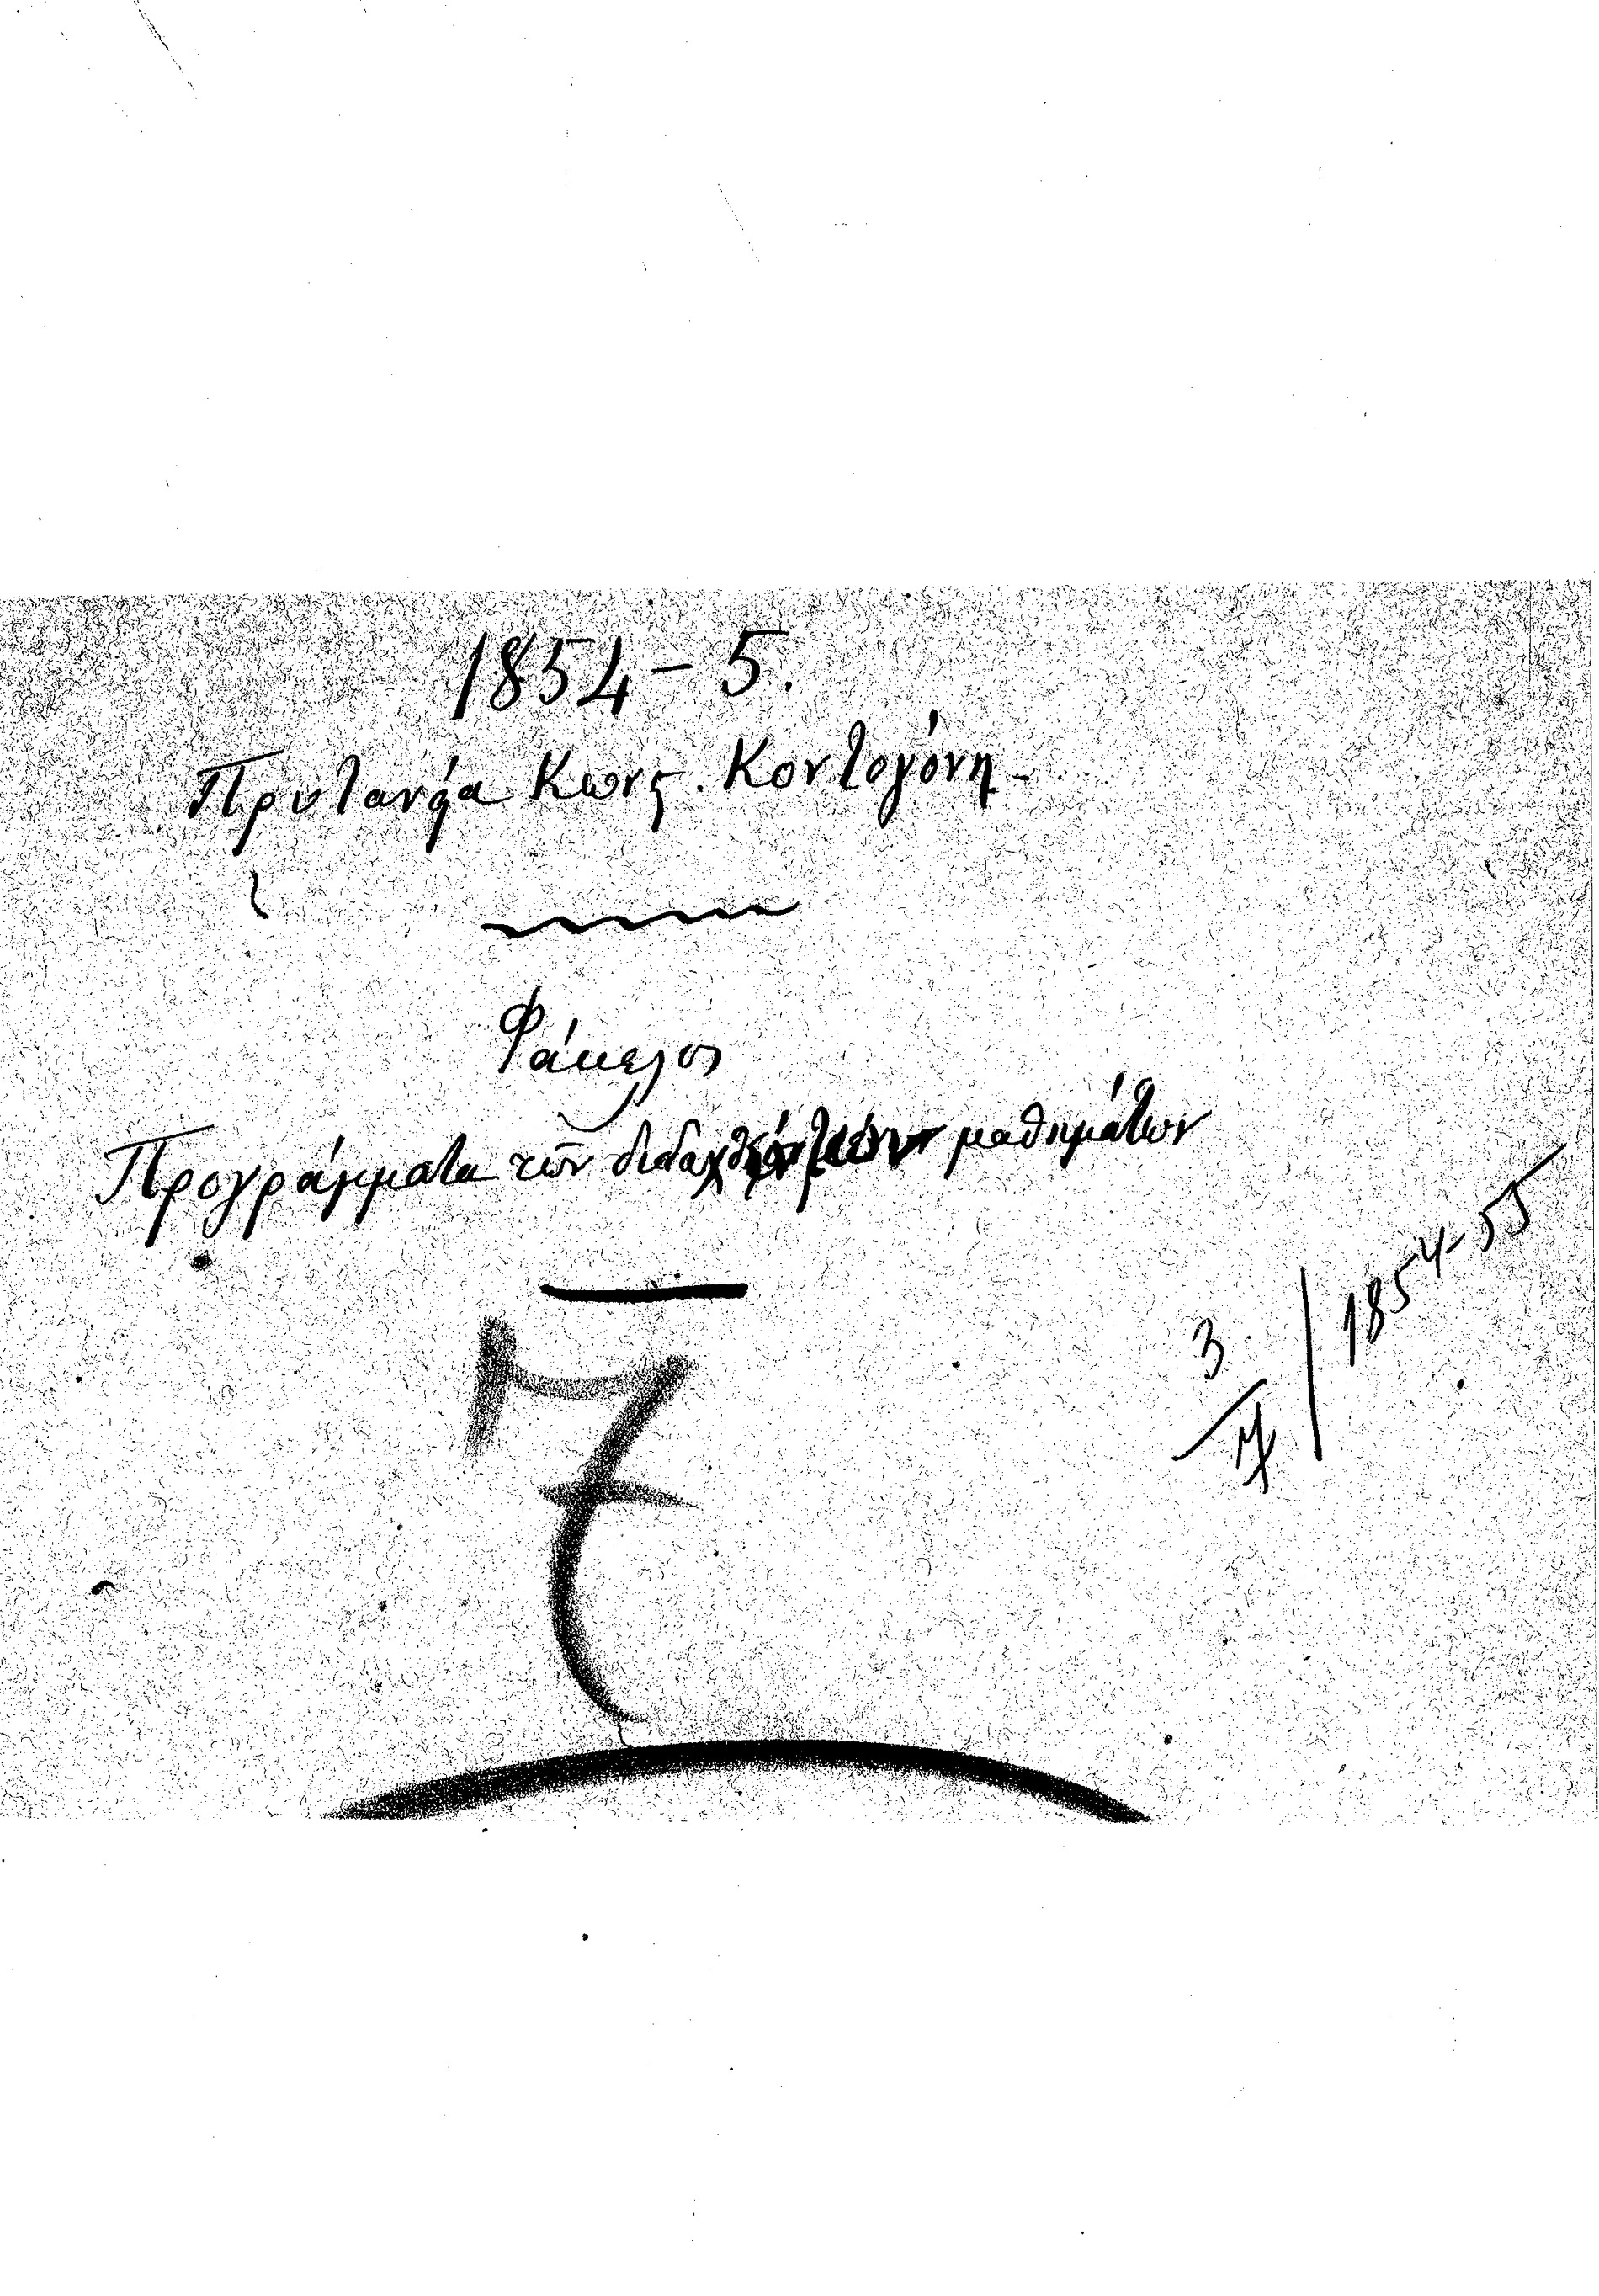 1854 - 5.
Πρυτανεία Κωνς. Κοντογόνη -
Φάκελος
Προγράμματα τῶν μαθημάτων
7
3
1854-55